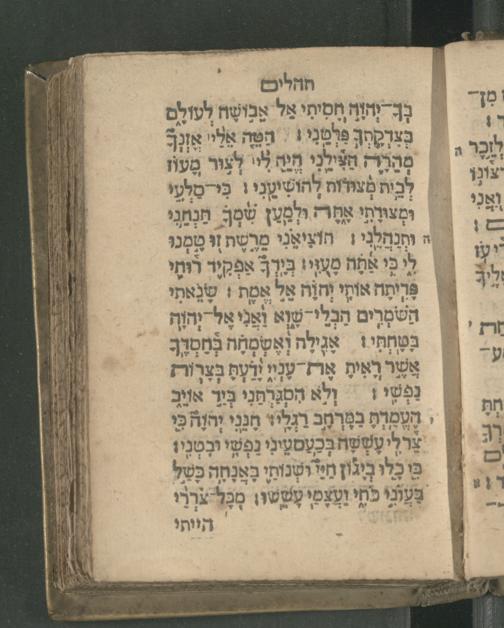 תהלים
בְּךָ־יְהוָה חָסִיתִי אַל אֵבוֹשָׁה לְעוֹלָם
בְּצִדְקָתְךָ פַלְּטֵנִי׃ הַטֵּה אֵלַי אָזְנְךָ
מְהֵרָה הַצִּילֵנִי הֱיֵה לִי לְצוּר מָעוֹז
לְבֵית מְצוּדוֹת לְהוֹשִׁיעֵנִי׃ כִּי־סַלְעִי
וּמְצוּדָתִי אָתָּה וּלְמַעַן שִׁמְךָ תַּנְחֵנִי
וּתְנַהֲלֵנִי׃ תּוֹצִיאֵנִי מֵרֶשֶׁת זוּ טָמְנוּ ה
לִי כִּי אַתָּה מָעֻזִּי׃ בְּיָדְךָ אַפְקִיד רוּחִי
פָּדִיתָה אוֹתִי יְהוָה אֵל אֱמֶת׃ שָׂנֵאתִי
הַשֹּׁמְרִים הַבְלֵי־שָׁוְא וַאֲנִי אֶל־יְהוָה
בָּטָחְתִּי׃ אָגִילָה וְאֶשְׂמְחָה בְּחַסְדֶּךָ
אֲשֶׁר רָאִיתָ אֶת־עָנְיִי יָדַעְתָּ בְּצָרוֹת
נַפְשִׁי׃ וְלֹא הִסְגַּרְתַּנִי בְּיַד אוֹיֵב
הֶעֱמַדְתָּ בַמֶּרְחָב רַגְלָי׃ חָנֵּנִי יְהוָה כִּי
צַר לִי עָשְׁשָׁה בְכַעַס עֵינִי נַפְשִׁי וּבִטְנִי׃
כִּי כָלוּ בְיָגוֹן חַיַּי וּשְׁנוֹתַי בַּאֲנָחָה כָּשַׁל
בַּעֲוֹנִי כֹחִי וַעֲצָמַי עָשֵׁשׁוּ׃ מִכָּל־צֹרְרַי
הייתי